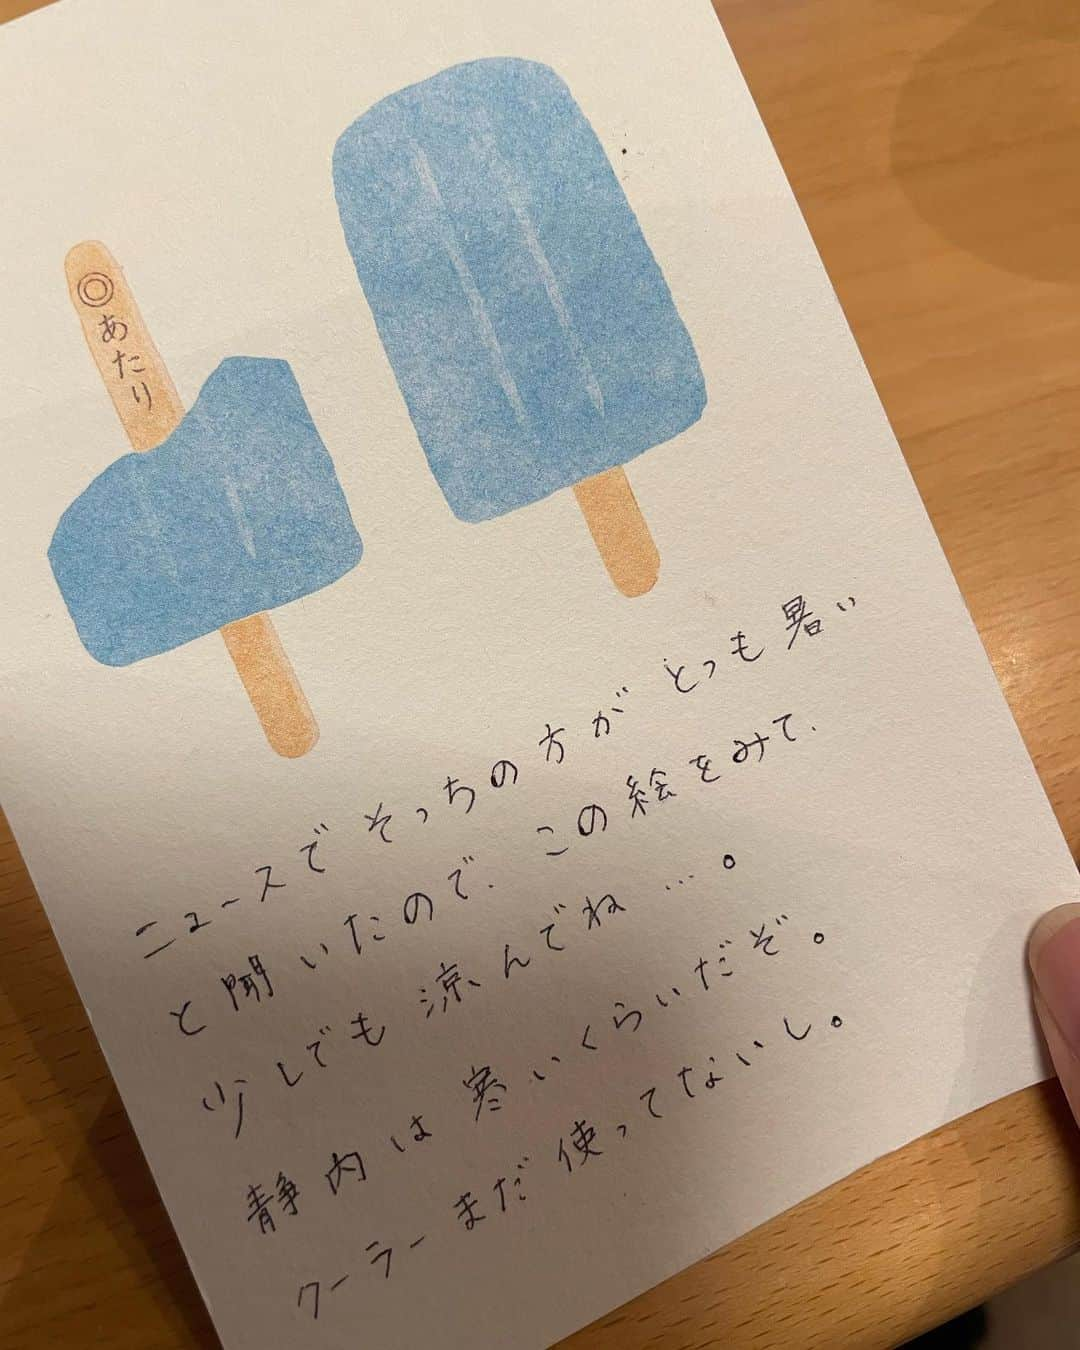 ◎あたり
ニュースでそっちの方がとっも暑い
と聞いたので、この絵をみて、
少しでも涼んでね…。
静内は寒いくらいだぞ。
クーラーまだ使ってないし。